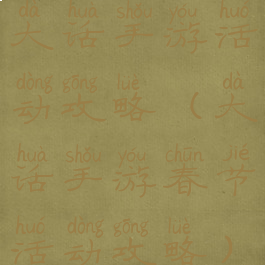 dà huà shǒu yóu huó
大话手游活
dòng gōng lüè dà
动攻略（大
huà shǒu yóu chūn jié
话手游春节
huó dòng gōng lüè
活动攻略）